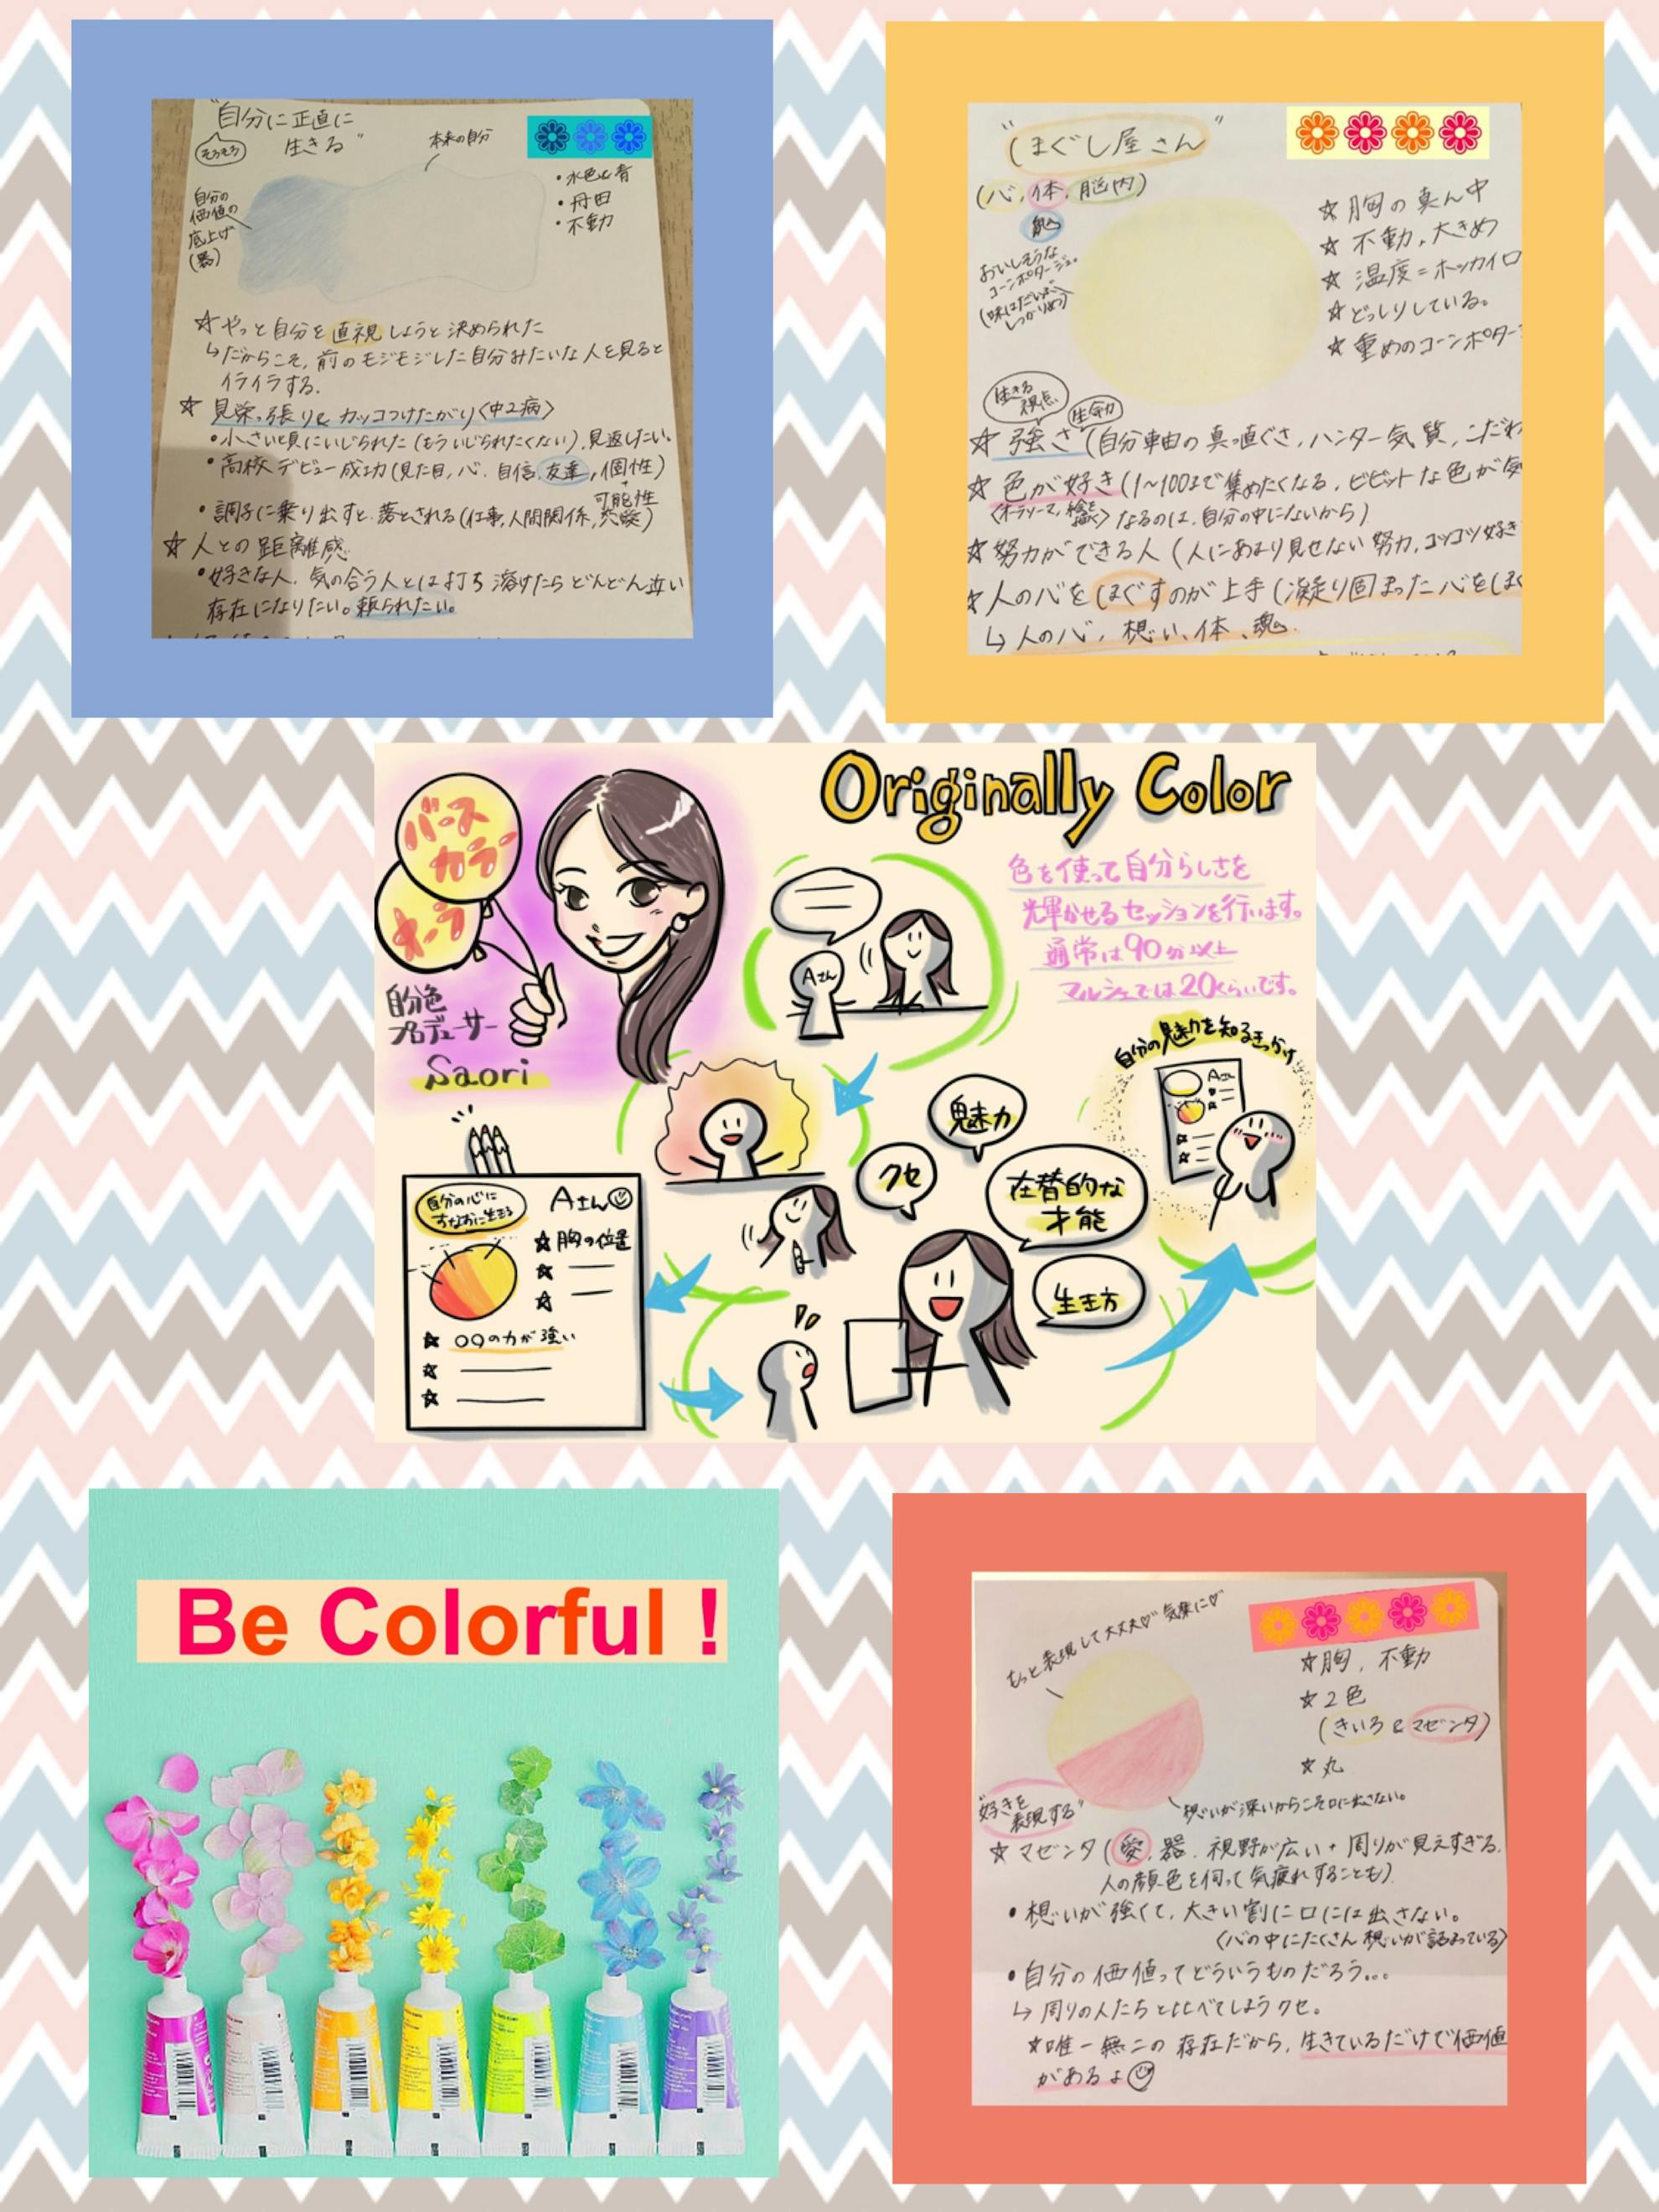 "自分に正直に
生きる"
そろそろ
本来の自分
自分の
価値の
底上げ
(器)
・水色と青
・丹田
・不動
☆やっと自分を直視しようと決められた
↳だからこそ、前のモジモジした自分みたいな人を見ると
イライラする。
☆見栄っ張り& カッコつけたがり〈中2病〉
・小さい頃にいじられた(もういじられたくない)、見返したい。
・高校デビュー成功(見た目、心、自信、友達、個性)
可能性
・調子に乗り出すと、落とされる(仕事、人間関係、
☆人との距離感
・好きな人、気の合う人とは打ち溶けたらどんどん近い
存在になりたい。頼られたい。
"ほぐし屋さん"
(心、体、脳内)
おいしそうな
コーンポタージュ。
(味はだいぶ
しっかりめ)
☆胸の真ん中
☆不動、大きめ
☆温度=ホッカイロ
☆どっしりしている。
☆重めのコーンポター
生きる
視点
生命力
☆強さ(自分軸の真っ直ぐさ、ハンター気質、こだわ
☆色が好き(1〜100まで集めたくなる、ビビットな色が気
なるのは、自分の中にないから)
☆努力ができる人(人にあまり見せない努力、コツコツ好き
☆人の心をほぐすのが上手(凝り固まった心をほぐ
↳人の心、想い、体、魂
Originally Color
バース
カラー
オーラ
自分色
プロデューサー
Saori
色を使って自分らしさを
輝かせるセッションを行います。
通常は90分以上
マルシェでは20くらいです。
Aさん
自分の魅力を知るきっかけ
Aさん
魅力
クセ
在替的な
才能
生き方
自分の心に
すなおに生きる
Aさん
☆胸の位置
☆
☆
☆ ○○の力が強い
☆
☆
Be Colorful !
もっと表現して大丈夫♡"気楽に♡"
☆胸、不動
☆2色
(きいろ&マゼンタ)
☆丸
"好きを
表現する"
想いが深いからこそ口に出さない。
☆マゼンタ(愛、器、視野が広い+周りが見えすぎる。
人の顔色を伺って気疲れすることも)
・想いが強くて、大きい割に口には出さない。
〈心の中にたくさん想いが詰まっている〉
・自分の価値ってどういうものだろう...
↳周りの人たちと比べてしまうクセ。
☆唯一無二の存在だから、生きているだけで価値
があるよ☺